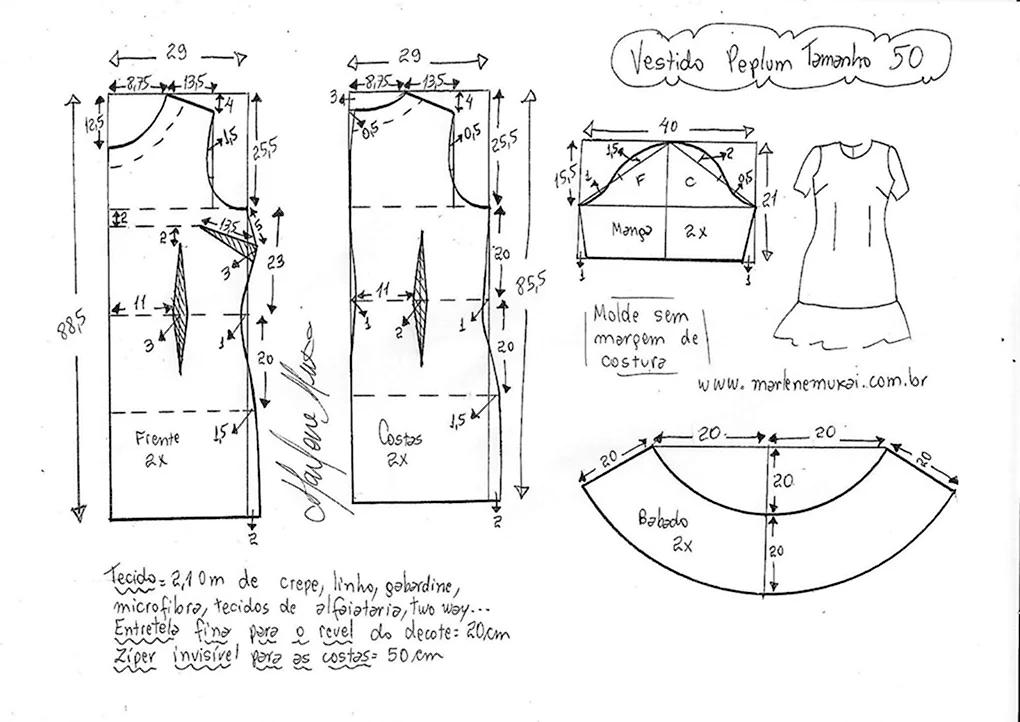 Vestido Peplum Tamanho 50
29
8,75 13,5
12,5
4
1,5
25,5
88,5
2
13,5
5
2
3
23
11
3
1
20
1,5
Frente
2x
2
29
8,75 13,5
3
4
0,5
0,5
25,5
20
85,5
11
1
2
1
20
1,5
Costas
2x
2
Marlene Mukai
40
15,5
1,5
2
1
F
C
0,5
21
Manga 2x
1
1
Molde sem
margem de
costura
www.marlenemukai.com.br
20 20
20
20
20
Babado
2x
20
Tecido = 2,10m de crepe, linho, gabardine,
microfibra, tecidos de alfaiataria, two way...
Entretela fina para o revel do decote = 20cm
Zíper invisível para as costas = 50cm